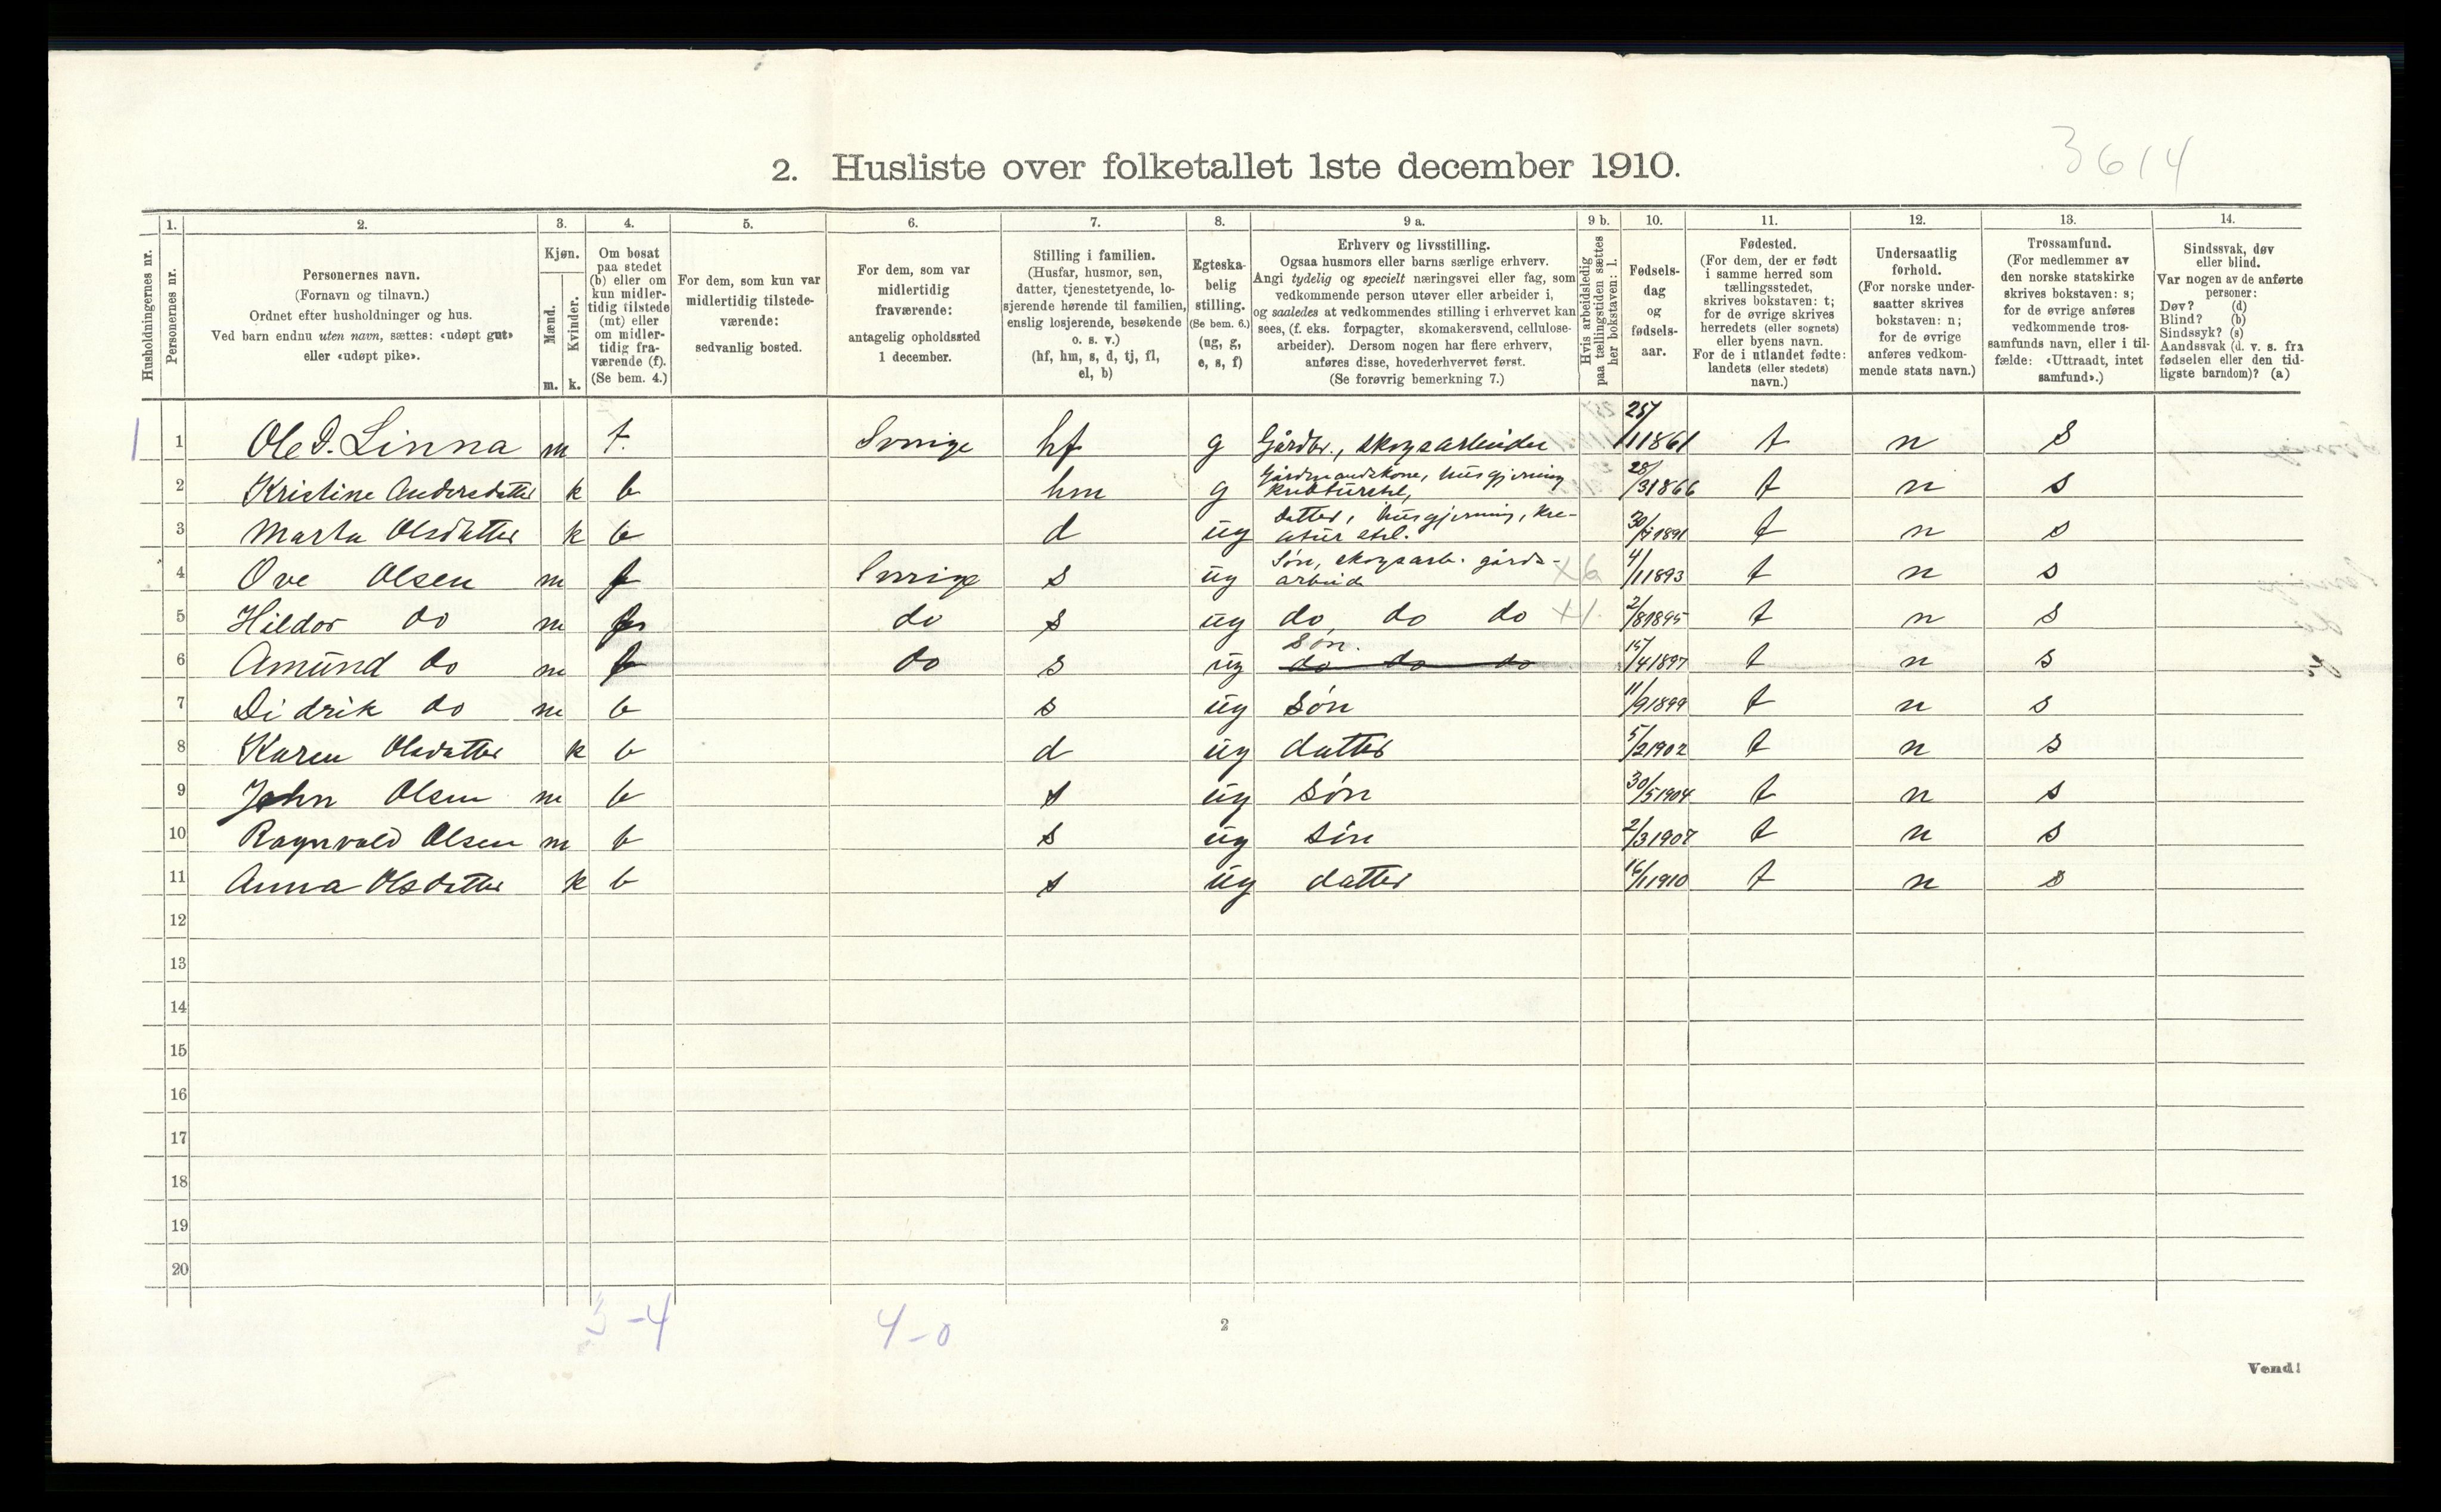 3614
2. Husliste over folketallet 1ste december 1910.
Husholdningernes nr.
1. Personernes nr.
2. Personernes navn.
(Fornavn og tilnavn.)
Ordnet efter husholdninger og hus.
Ved barn endnu uten navn, sættes: «udøpt gut»
eller «udøpt pike».
3. Kjøn.
Mænd. m.
Kvinder. k.
4. Om bosat
paa stedet
(b) eller om
kun midler-
tidig tilstede
(mt) eller
om midler-
tidig fra-
værende (f).
(Se bem. 4.)
5. For dem, som kun var
midlertidig tilstede-
værende:
sedvanlig bosted.
6. For dem, som var
midlertidig
fraværende:
antagelig opholdssted
1 december.
7. Stilling i familien.
(Husfar, husmor, søn,
datter, tjenestetyende, lo-
sjerende hørende til familien,
enslig losjerende, besøkende
o. s. v.)
(hf, hm, s, d, tj, fl,
el, b)
8. Egteska-
belig
stilling.
(Se bem. 6.)
(ug, g,
e, s, f)
9 a. Erhverv og livsstilling.
Ogsaa husmors eller barns særlige erhverv.
Angi tydelig og specielt næringsvei eller fag, som
vedkommende person utøver eller arbeider i,
og saaledes at vedkommendes stilling i erhvervet kan
sees, (f. eks. forpagter, skomakersvend, cellulose-
arbeider). Dersom nogen har flere erhverv,
anføres disse, hovederhvervet først.
(Se forøvrig bemerkning 7.)
9 b. Hvis arbeidsledig
paa tællingstiden sættes
her bokstaven: l.
10. Fødsels-
dag
og
fødsels-
aar.
11. Fødested.
(For dem, der er født
i samme herred som
tællingsstedet,
skrives bokstaven: t;
for de øvrige skrives
herredets (eller sognets)
eller byens navn.
For de i utlandet fødte:
landets (eller stedets)
navn.)
12. Undersaatlig
forhold.
(For norske under-
saatter skrives
bokstaven: n;
for de øvrige
anføres vedkom-
mende stats navn.)
13. Trossamfund.
(For medlemmer av
den norske statskirke
skrives bokstaven: s;
for de øvrige anføres
vedkommende tros-
samfunds navn, eller i til-
fælde: «Uttraadt, intet
samfund».)
14. Sindssvak, døv
eller blind.
Var nogen av de anførte
personer:
Døv? (d)
Blind? (b)
Sindssyk? (s)
Aandssvak (d. v. s. fra
fødselen eller den tid-
ligste barndom)? (a)
1 1 Ole D. Linna m f. Sverige hf g Gårdbr., skogsarbeider 25/11861 t n s
2 Kristine Andersdatter k b hm g Gårdmandskone, husgjerning kreaturstel, 28/31866 t n s
3 Marta Olsdatter k b d ug datter, husgjerning, kre-
atur stel. 30/71891 t n s
4 Ove Olsen m f Sverige s ug Søn, skogsarb. gårds-
arbeid 4/11893 t n s
5 Hildor do m f do s ug do do do 2/81895 t n s
6 Amund do m f do s ug Søn. do do do 15/41897 t n s
7 Didrik do m b s ug søn 11/91899 t n s
8 Karen Olsdatter k b d ug datter 5/21902 t n s
9 John Olsen m b s ug søn 30/51904 t n s
10 Ragnvald Olsen m b s ug søn 2/31907 t n s
11 Anna Olsdatter k b s ug datter 16/11910 t n s
12
13
14
15
16
17
18
19
20
3-4 4-0
2
Vend!